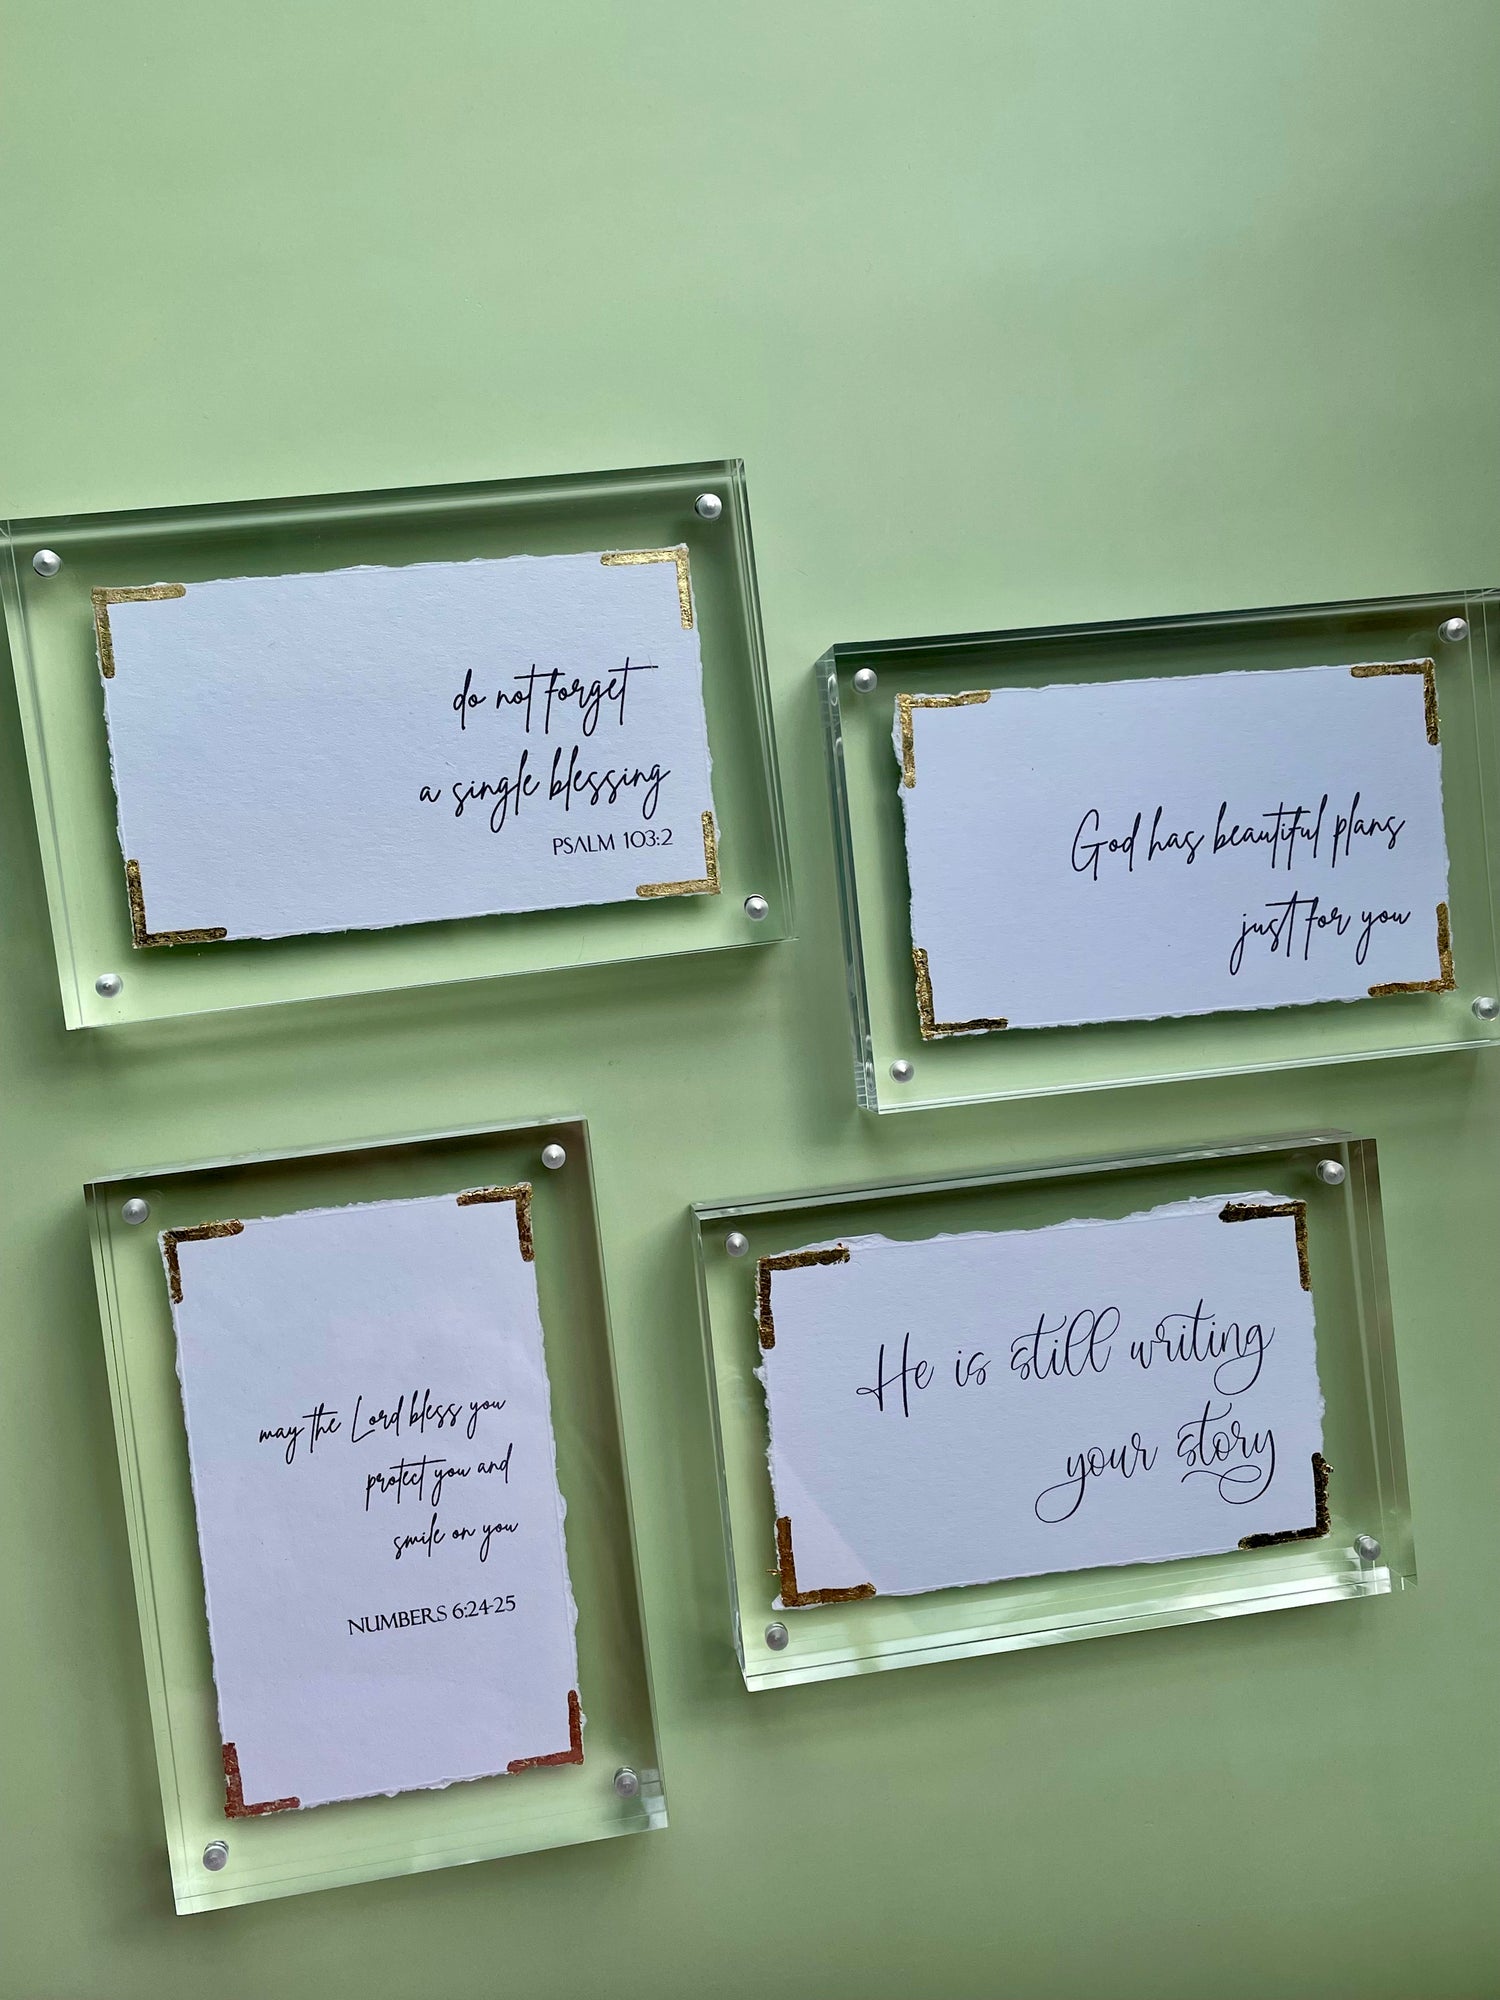 do not forget
a single blessing
PSALM 103:2
God has beautiful plans
just for you
may the Lord bless you
protect you and
smile on you
NUMBERS 6:24-25
He is still writing
your story